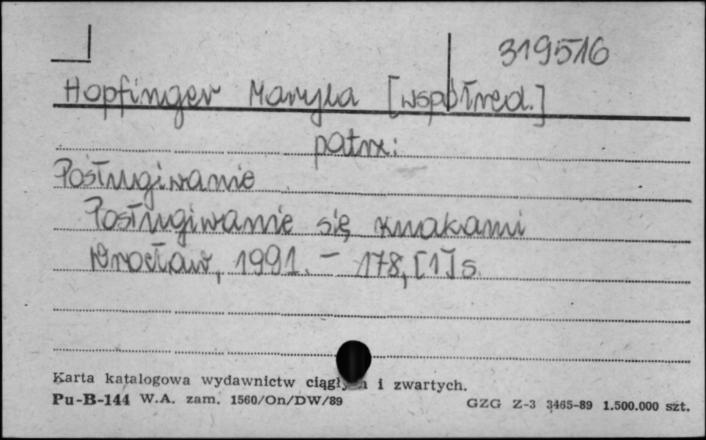 319516
Hopfinger Maryla [współred.]
patrz:
Posługiwanie
Posługiwanie się znakami
Wrocław, 1991. – 178, [1] s.
Karta katalogowa wydawnictw ciągłych i zwartych.
Pu-B-144 W.A. zam. 1560/On/DW/89 GZG Z-3 3465-89 1.500.000 szt.